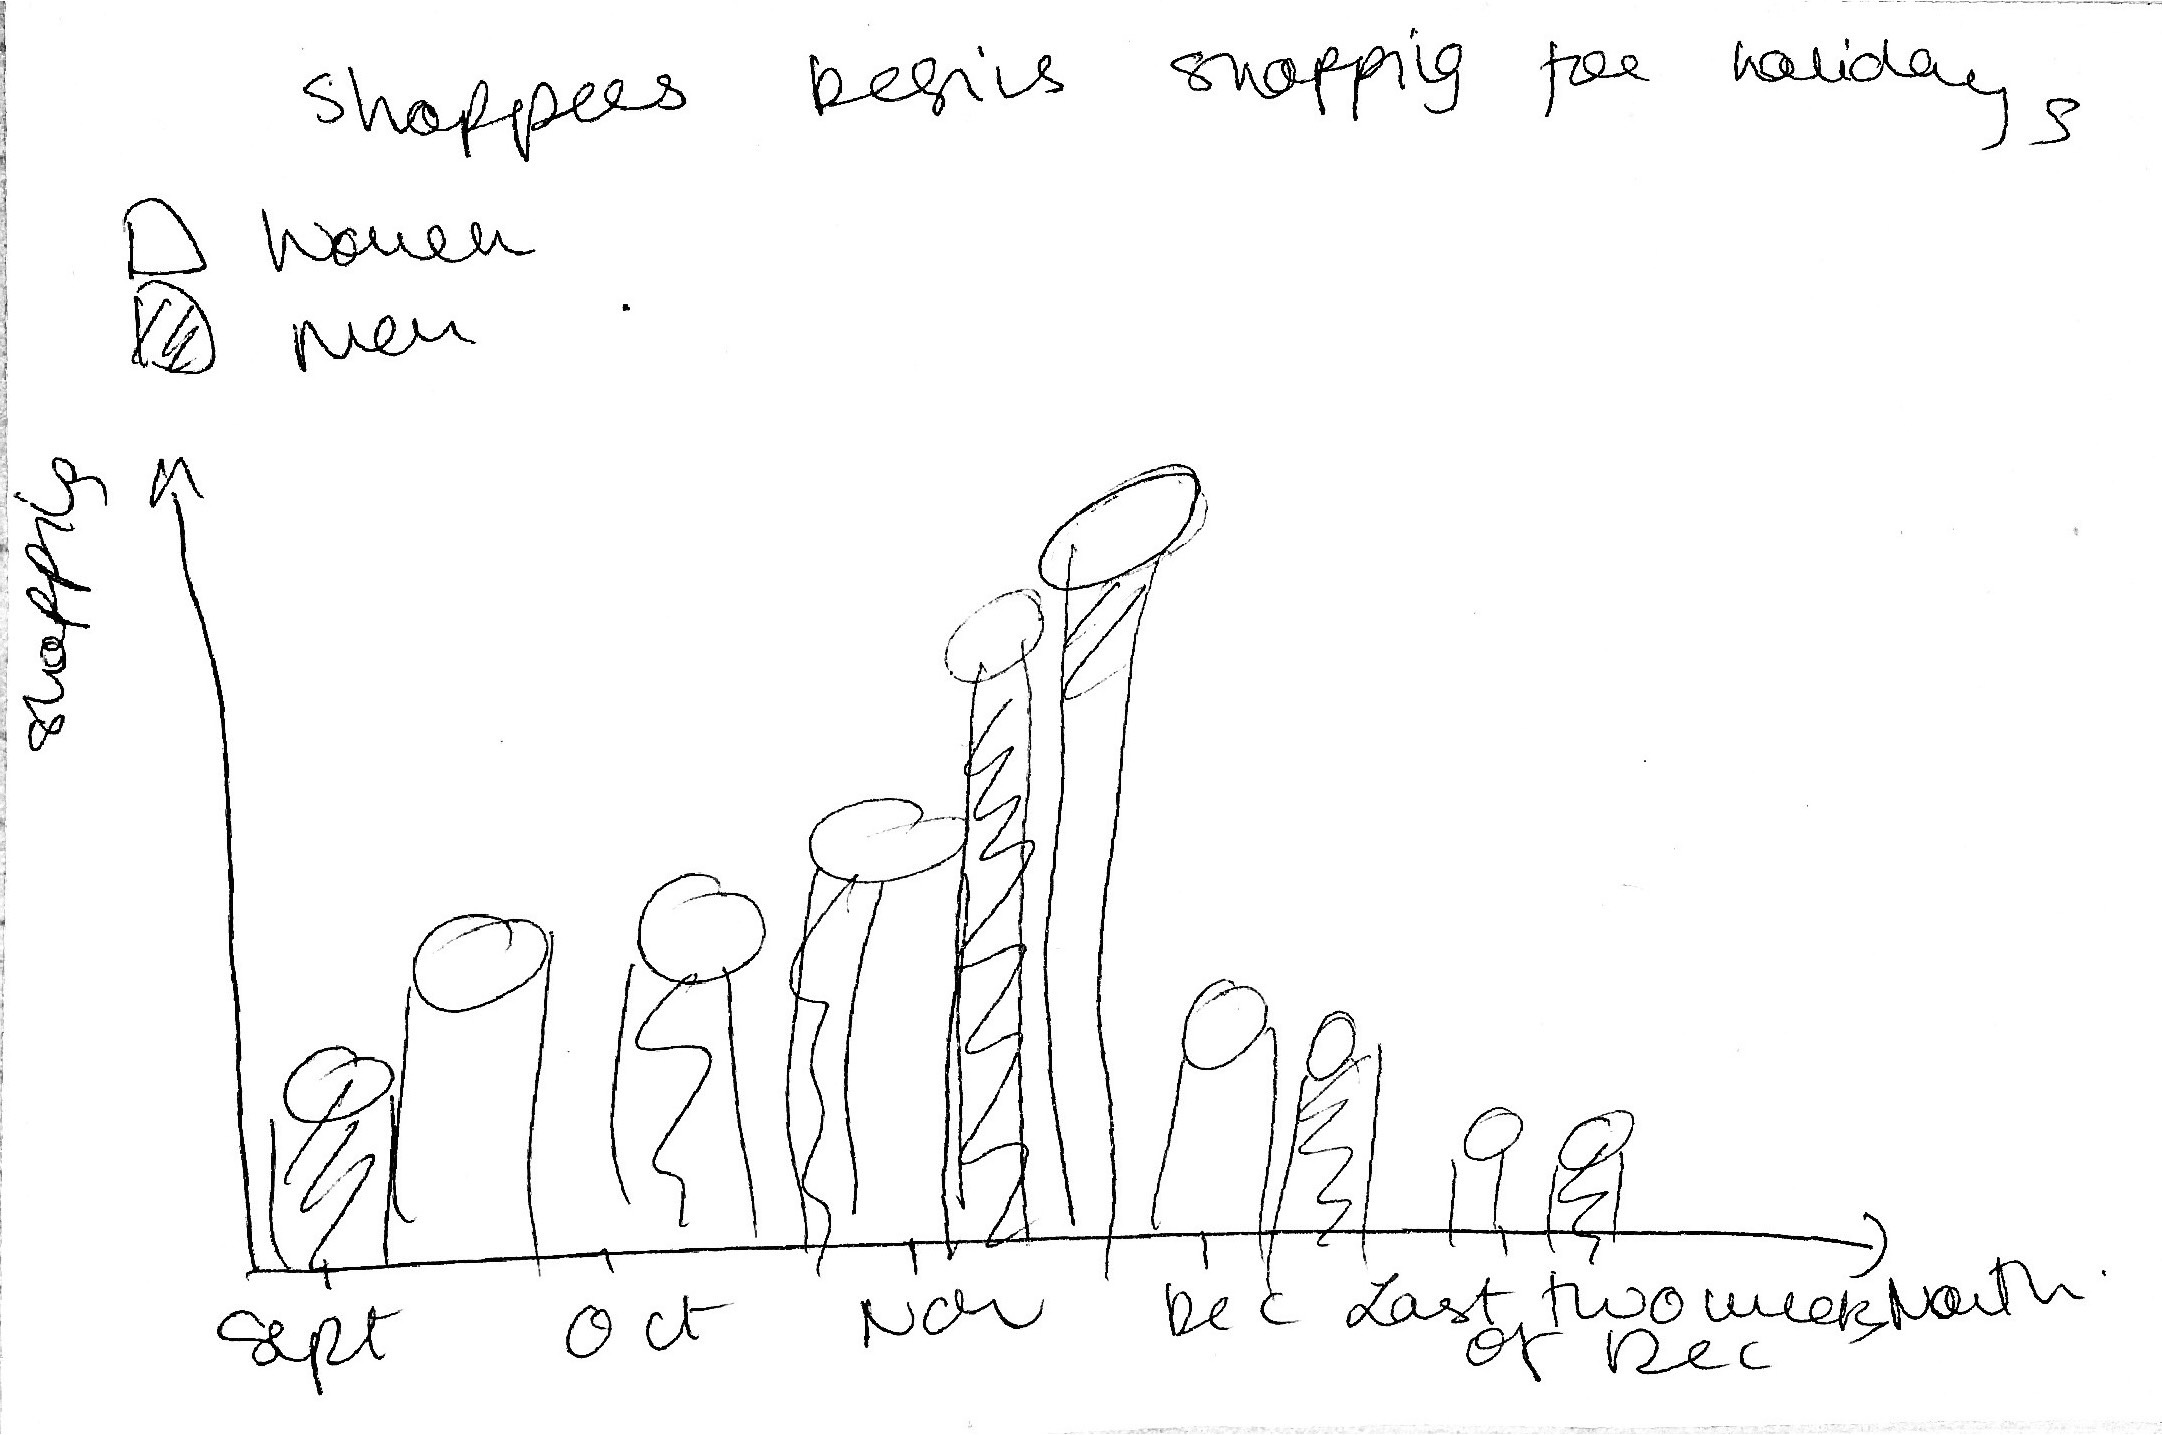 Shoppers begins shopping for holidays
Women
Men
Shopping
Sept Oct Nov Dec Last two weeks Month
of Dec